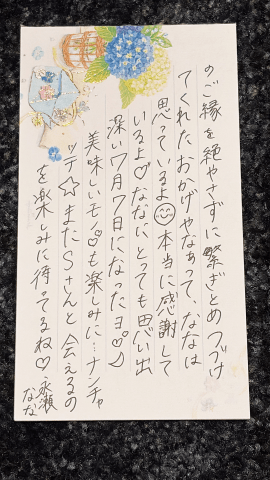 のご縁を絶やさずに繋ぎとめつづけ
てくれたおかげやなぁって、ななは
思っているよ☺本当に感謝して
いるよ♡ななにとっても思い出
深い7月7日になったヨ♡♪
美味しいモノ♡も楽しみに…ナンチャ
ッテ☆またSさんと会えるの
を楽しみに待ってるね♡永瀬
なな